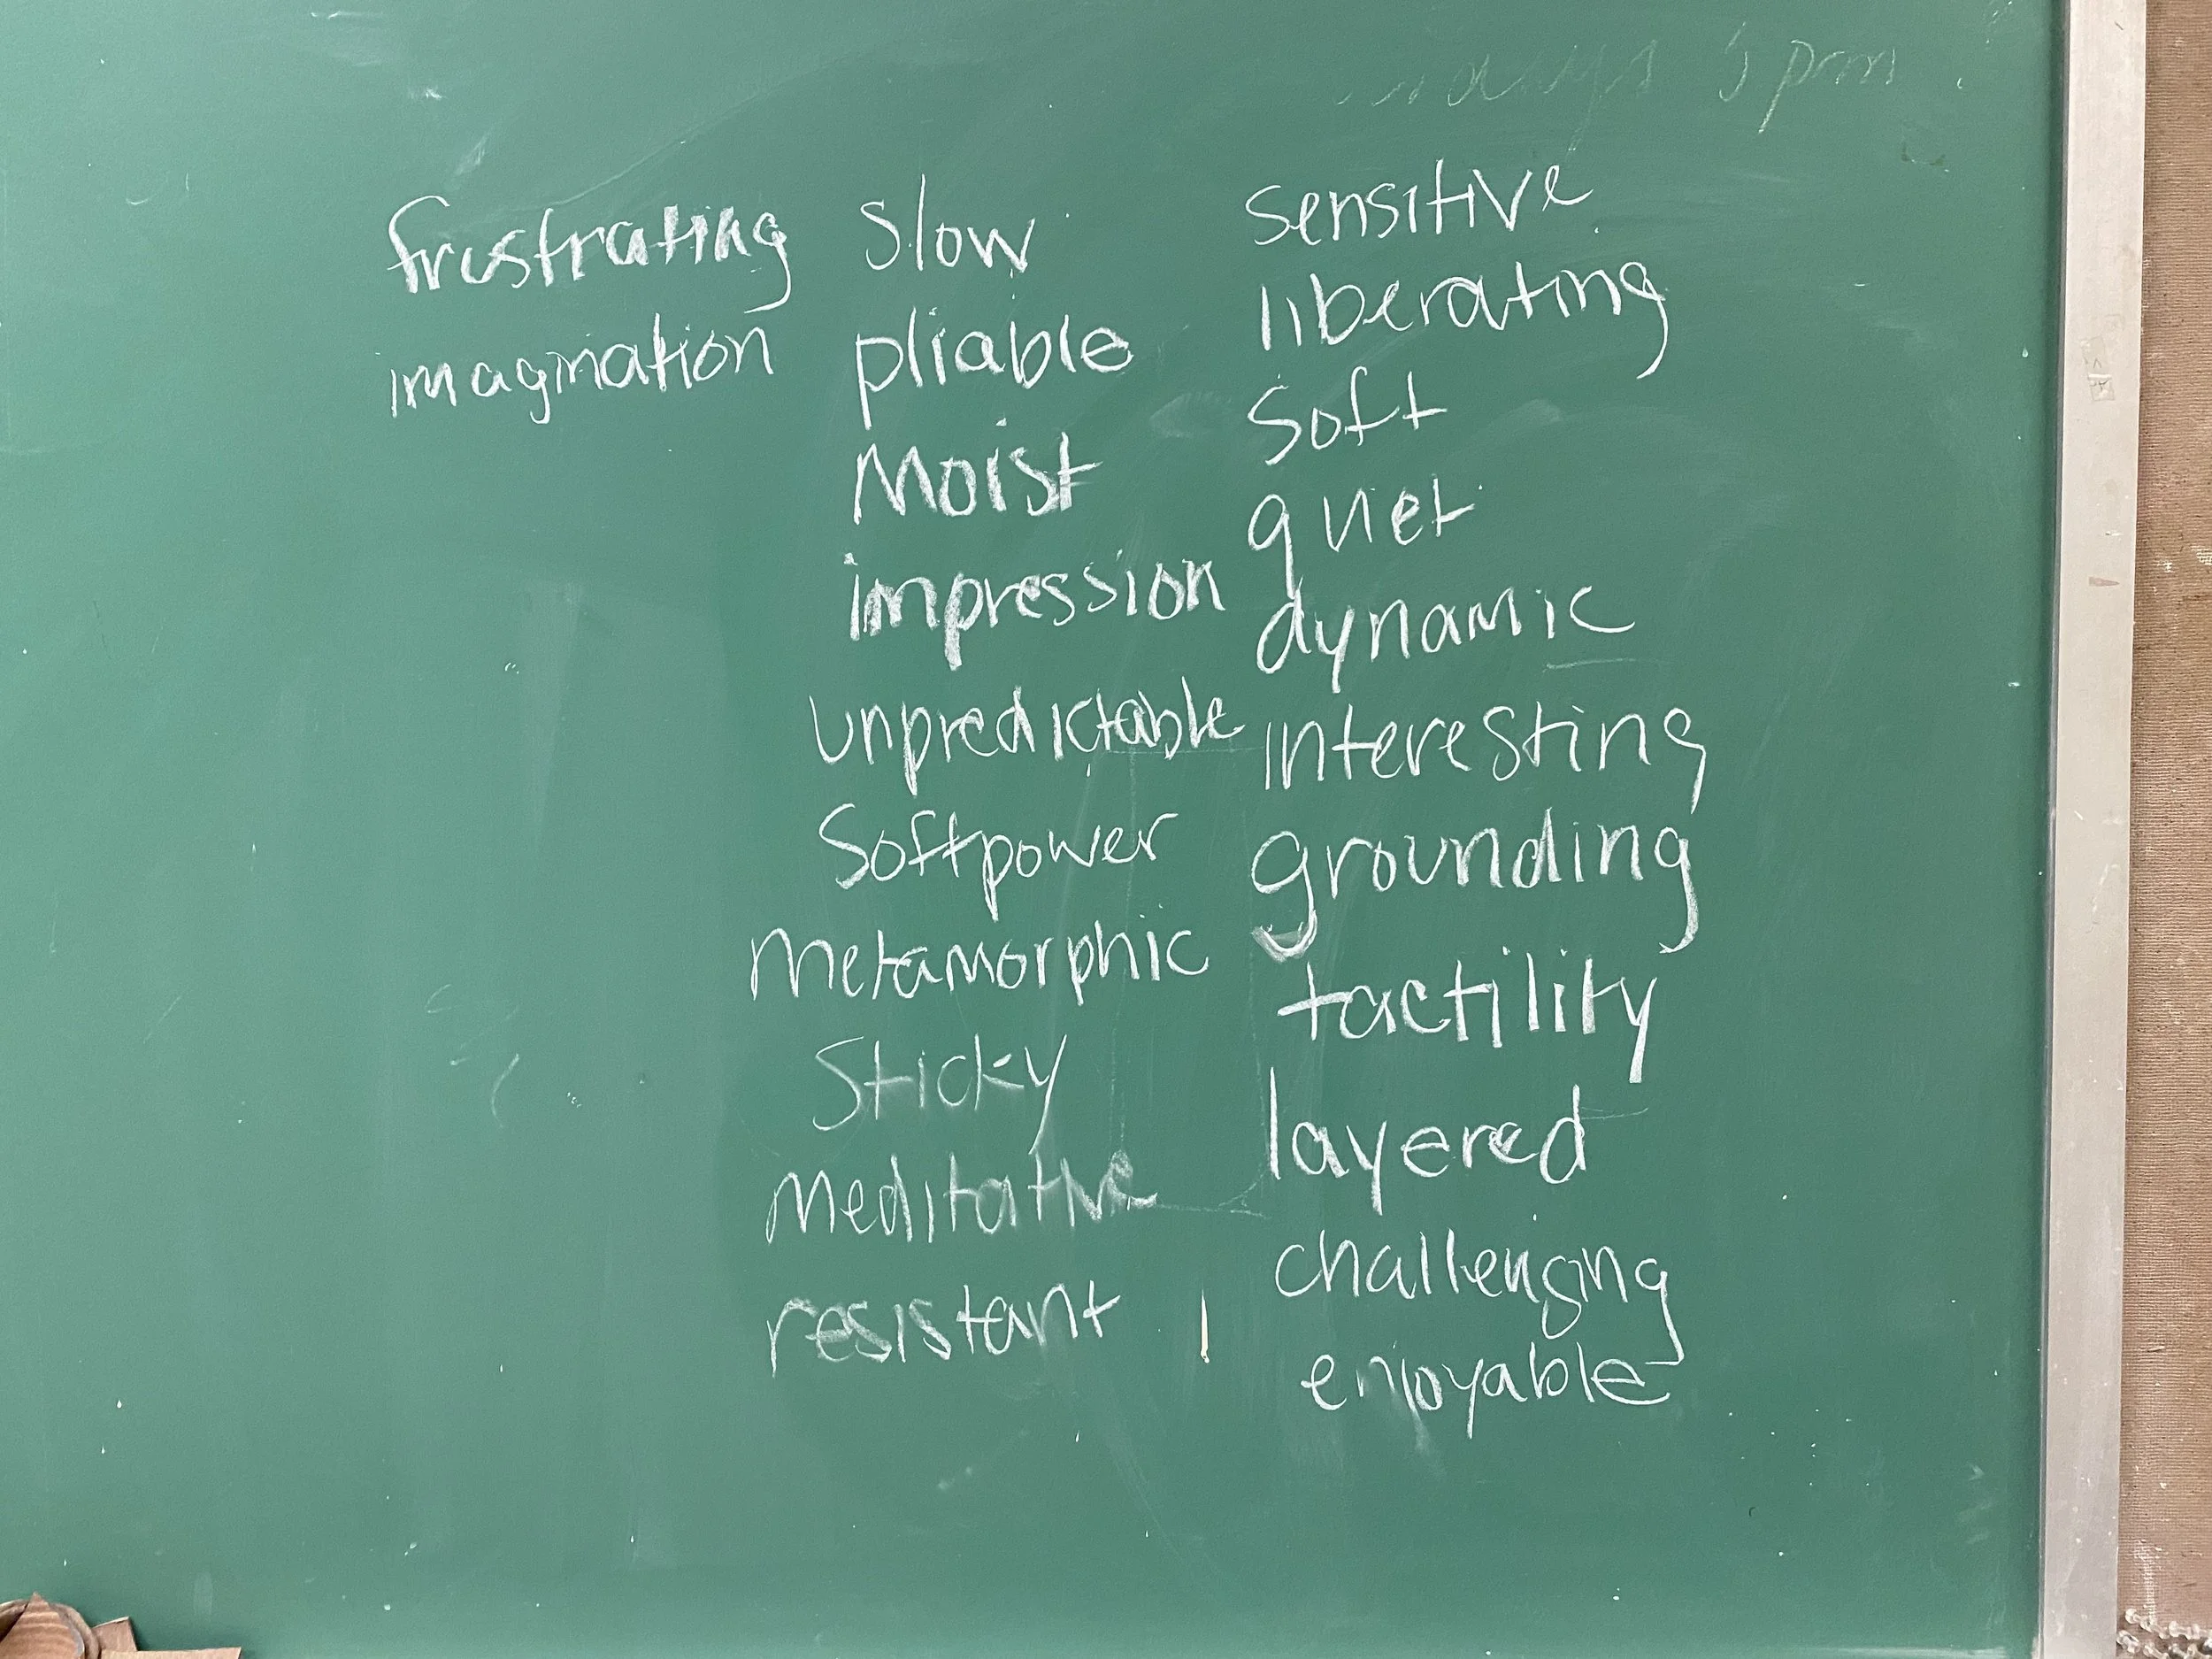 5pm
frustrating
imagination
slow
pliable
Moist
impression
unpredictable
Softpower
metamorphic
Sticky
Meditative
resistant
Sensitive
liberating
Soft
quiet
dynamic
interesting
grounding
tactility
layered
challenging
enjoyable